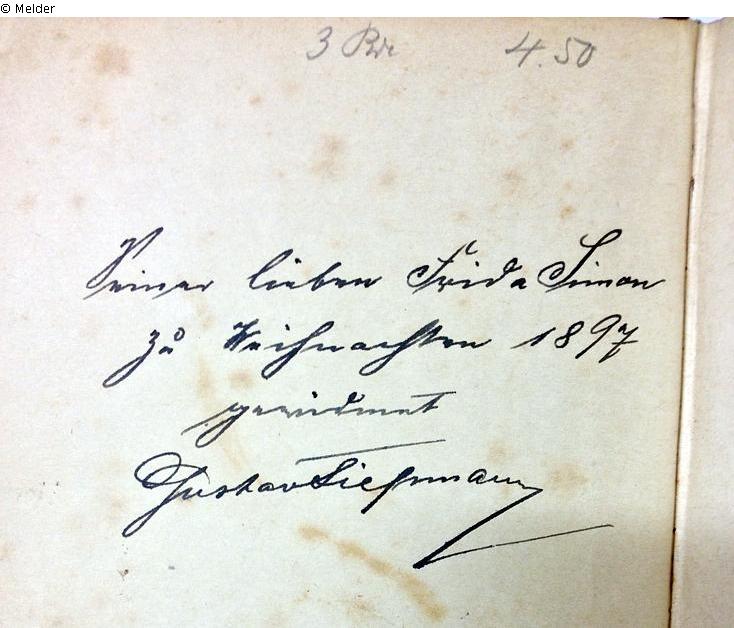 © Melder
3 4.50
Seiner lieben Frida Simon
zu Weihnachten 1897
gewidmet
Gustav